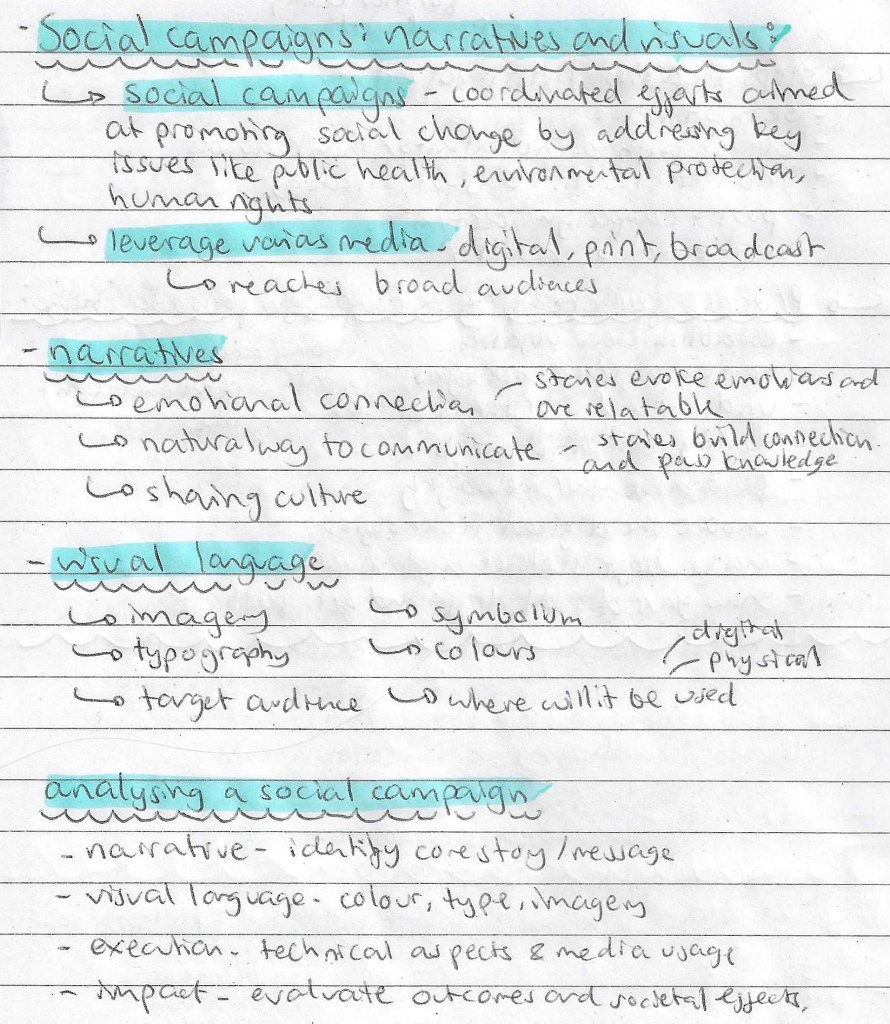 - Social campaigns: narratives and visuals:
↳ social campaigns - coordinated efforts aimed
at promoting social change by addressing key
issues like public health, environmental protection,
human rights
↳ leverage varias media - digital, print, broadcast
↳ reaches broad audiences
- narratives
↳ emotional connection - stories evoke emotions and
are relatable
↳ natural way to communicate - stories build connection
and pass knowledge
↳ sharing culture
- visual language
↳ imagery ↳ symbolism
↳ typography ↳ colours
↳ target audience ↳ where will it be used - digital
- physical
analysing a social campaign
- narrative - identify core story/message
- visual language - colour, type, imagery
- execution - technical aspects & media usage
- impact - evaluate outcomes and societal effects.